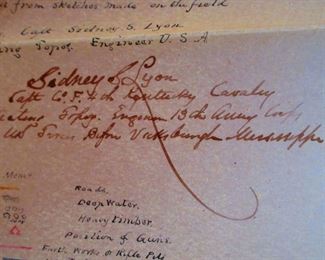 from sketches made on the field
Capt Sidney S. Lyon
Topog. Engineer U.S.A
Sidney S Lyon
Capt Co. F. 4th Kentucky Cavalry
Acting Topog. Engineer 13th Army Corps
Vicksburgh Mississippi
Roads.
Deep Water.
Heavy Timber.
Position of Guns.
Earth Works & Rifle Pits